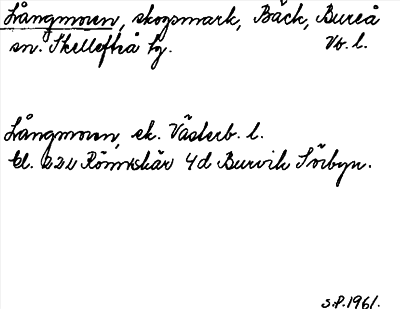 Långmoren, skogsmark, Bäck, Bureå
sn. Skellefteå tg. Vb. l.
Långmoren, ek. Västerb. l.
bl. 22L Rönnskär 4d Burvik Sörbyn.
S.P. 1961.